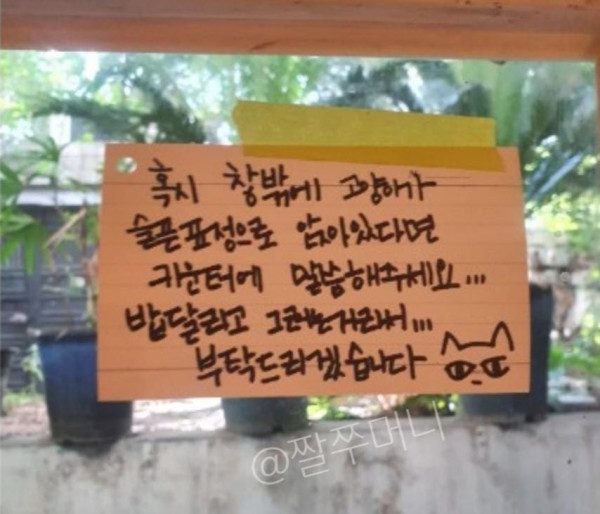 혹시 창밖에 고양이가
슬픈표정으로 앉아있다면
카운터에 말씀해주세요...
밥달라고 그러는거라서...
부탁드리겠습니다
@짤쭈머니